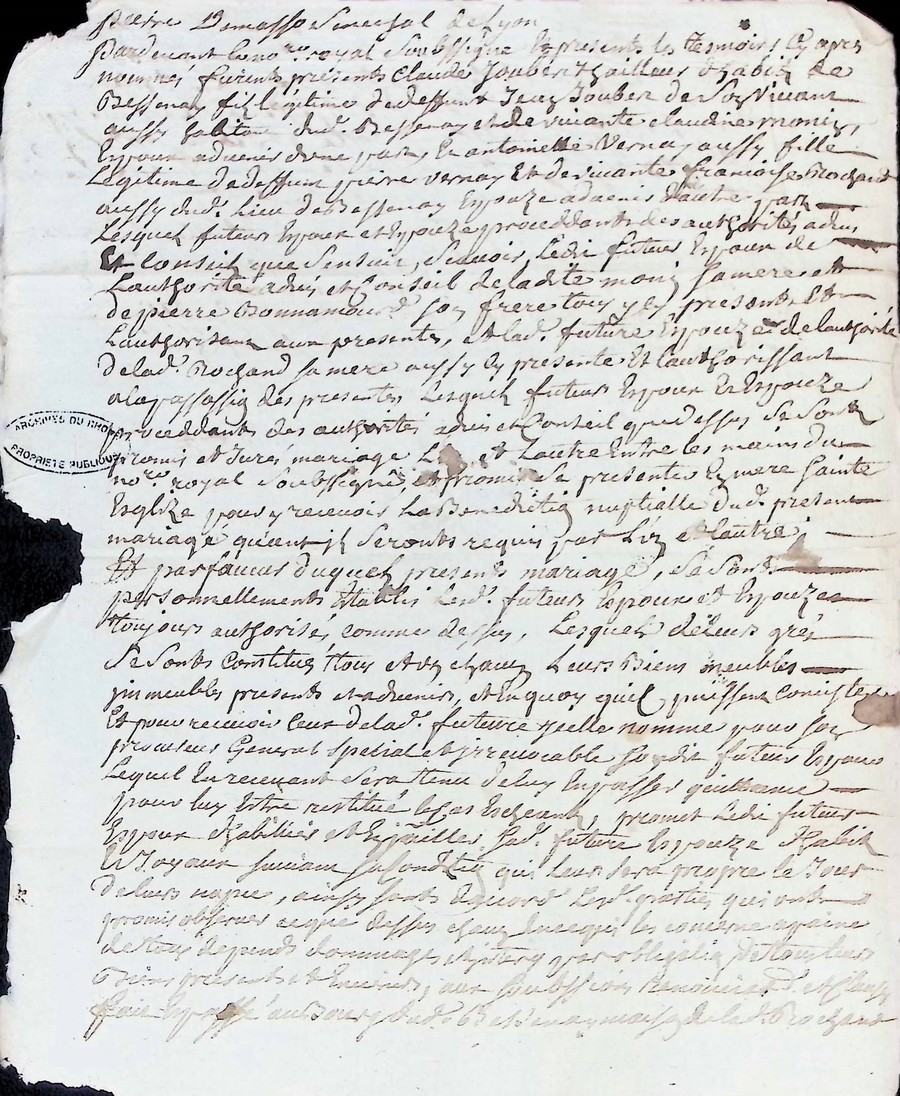 pierre Demasso Senechal de Lyon
Pardevant le nore royal Soubsigné Et presents les tesmoins cy apres
nommés furents presents Claude Joubert tailleur d'habitz de
Bessenay fils légitime de deffunt Jean Joubert de Son Vivant
aussy habitant dud. Bessenay et de vivante claudine moniz,
Espoux advenir d'une part, Et antoinette Vernay aussy fille
Légitime de deffunt pierre Vernay Et de vivante francoise Rochand
aussy dud. Lieu de Bessenay Espouze advenir d'autre part
Lesquels futurs Espoux et Espouze proceddants des authorités advis
Et Conseil que S'ensuit, Scavoir, Ledit futur Espoux de
L'authorité advis et Conseil de ladite moniz sa mere et
de pierre Bonnamour son frere tous icy presents Et
L'authorisant aux presentes, et lad. future Espouze de l'authorité
de lad. Rochand sa mere aussy icy presente Et l'authorissant
a la passassion des presentes Lesquels futurs Espoux Et Espouze
proceddants des authorités advis et Conseil que dessus Se Sont
promis et Jurés mariage L'un et L'autre Entre les mains du
nore royal Soubsigné, et promis Se presenter En mere Sainte
Esglize pour y recevoir La Benediction nuptialle Dud. present
mariage quant ils Seronts requis par L'un et L'autre,
Et par faveur duquel present mariage, Se Sont
personnellements Establis Lesd. futurs Espoux et Espouze
toujours authorisés comme dessus, Lesquels de Leurs grés
Se Sonts Constitués tous et un chacun Leurs Biens meubles
immeubles presents et advenir, et En quoy qu'ils puissent Concister
Et pour recevoir Ceux de lad. future icelle nomme pour son
procureur General Spetial et Irrevocable Sondit futur Espoux
Lequel En recevant Sera tenu de luy En passer quittance
pour luy Estre restitué le Cas Escheant, promet Ledit futur
Espoux d'habiller et Enjoailler Sad. future Espouze d'habits
Et Joyaux suivant sa Condition qui leur Sera propre le Jour
de leurs nopces, ainsy Sont d'accord Lesd. parties qui ont
promis observer ce que dessus chacun En ce qui les concerne a peine
de tous depends dommages et interests par obligation De tous leurs
Biens presents et advenir, aux Soubmissions Renonciations et Clauses
fait Et passé au Bourg dud. Bessenay maison de lad. Rochand
ARCHIVES DU RHONE
PROPRIETE PUBLIQUE